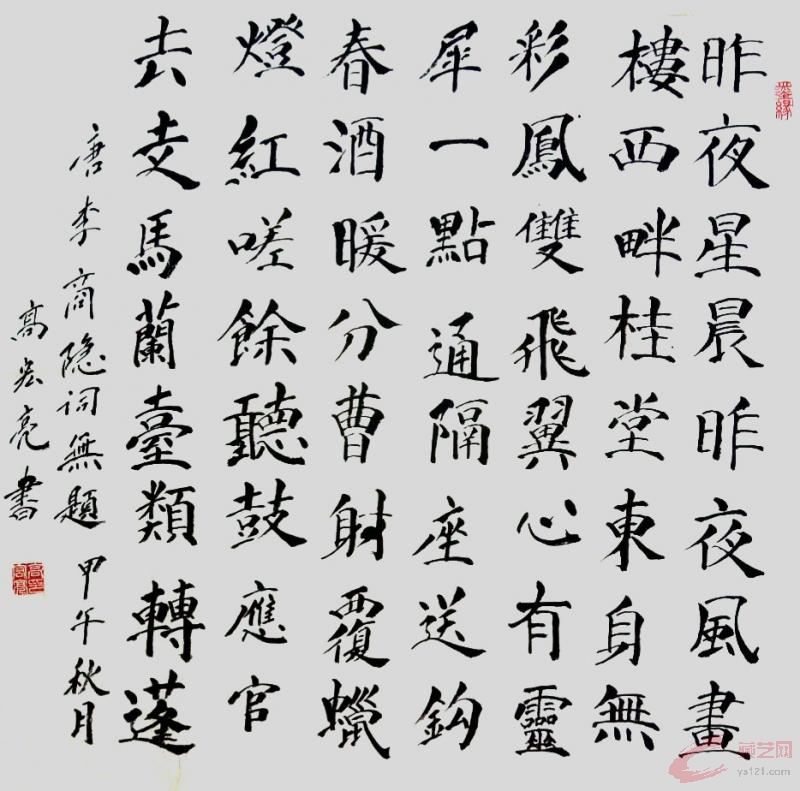 昨夜星晨昨夜風畫
樓西畔桂堂東身無
彩鳳雙飛翼心有靈
犀一點通隔座送鈎
春酒暖分曹射覆蠟
燈紅嗟餘聽鼓應官
去走馬蘭臺類轉蓬
唐李商隐詞無題 甲午秋月
高宏亮書
藏艺网
ys121.com